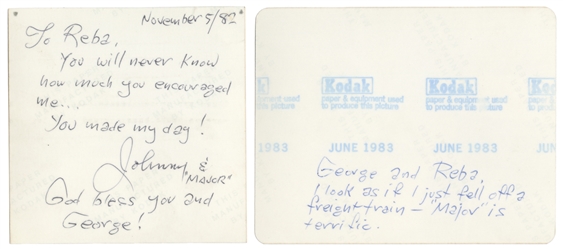 November 5/82
To Reba,
You will never know
how much you encouraged
me...
You made my day!
Johnny &
"MAJOR"
God bless you and
George!
Kodak Kodak Kodak
paper & equipment used paper & equipment used paper & equipment used
to produce this picture to produce this picture to produce this picture
JUNE 1983 JUNE 1983 JUN
George and Reba,
I look as if I just fell off a
freight train — "Major" is
terrific.